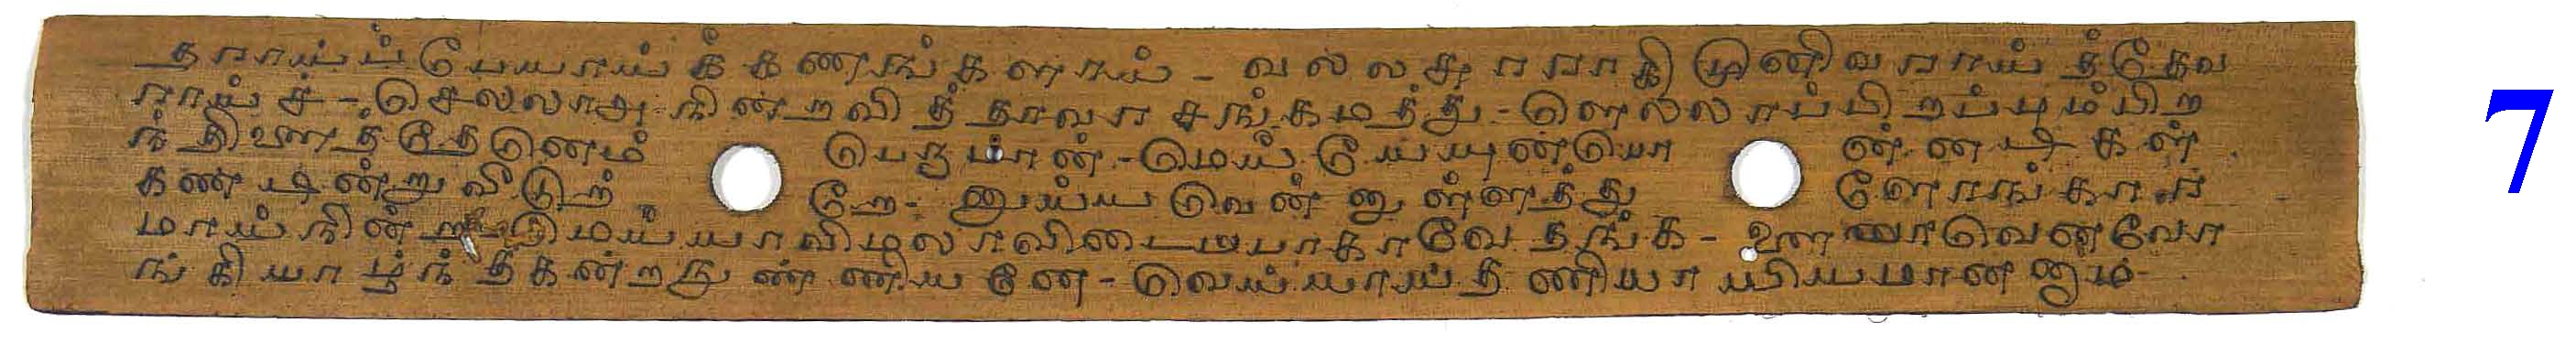 தராய்ப்பேயாய்க்கணங்களாய் - வல்லசுரராகிமுனிவராய்த்தேவ
ராய்ச் - செல்லாஅநின்றவித்தாவரசங்கமத்து - ளெல்லாப்பிறப்பும்பிற
ந்திளைத்தேனெம் பெருமான் - மெய்யேயுன்பொ ன்னடிகள்
கண்டின்றுவீடுற் றேனுய்யவென்னுள்ளத்து ளோங்கார
மாய்நின்ற மெய்யாவிமலாவிடைப்பாகாவேதங்க - ளையாவெனவோ
ங்கியாழ்ந்தகன்றநுண்ணியனே - வெய்யாய்தணியாயியமானனாம்
7